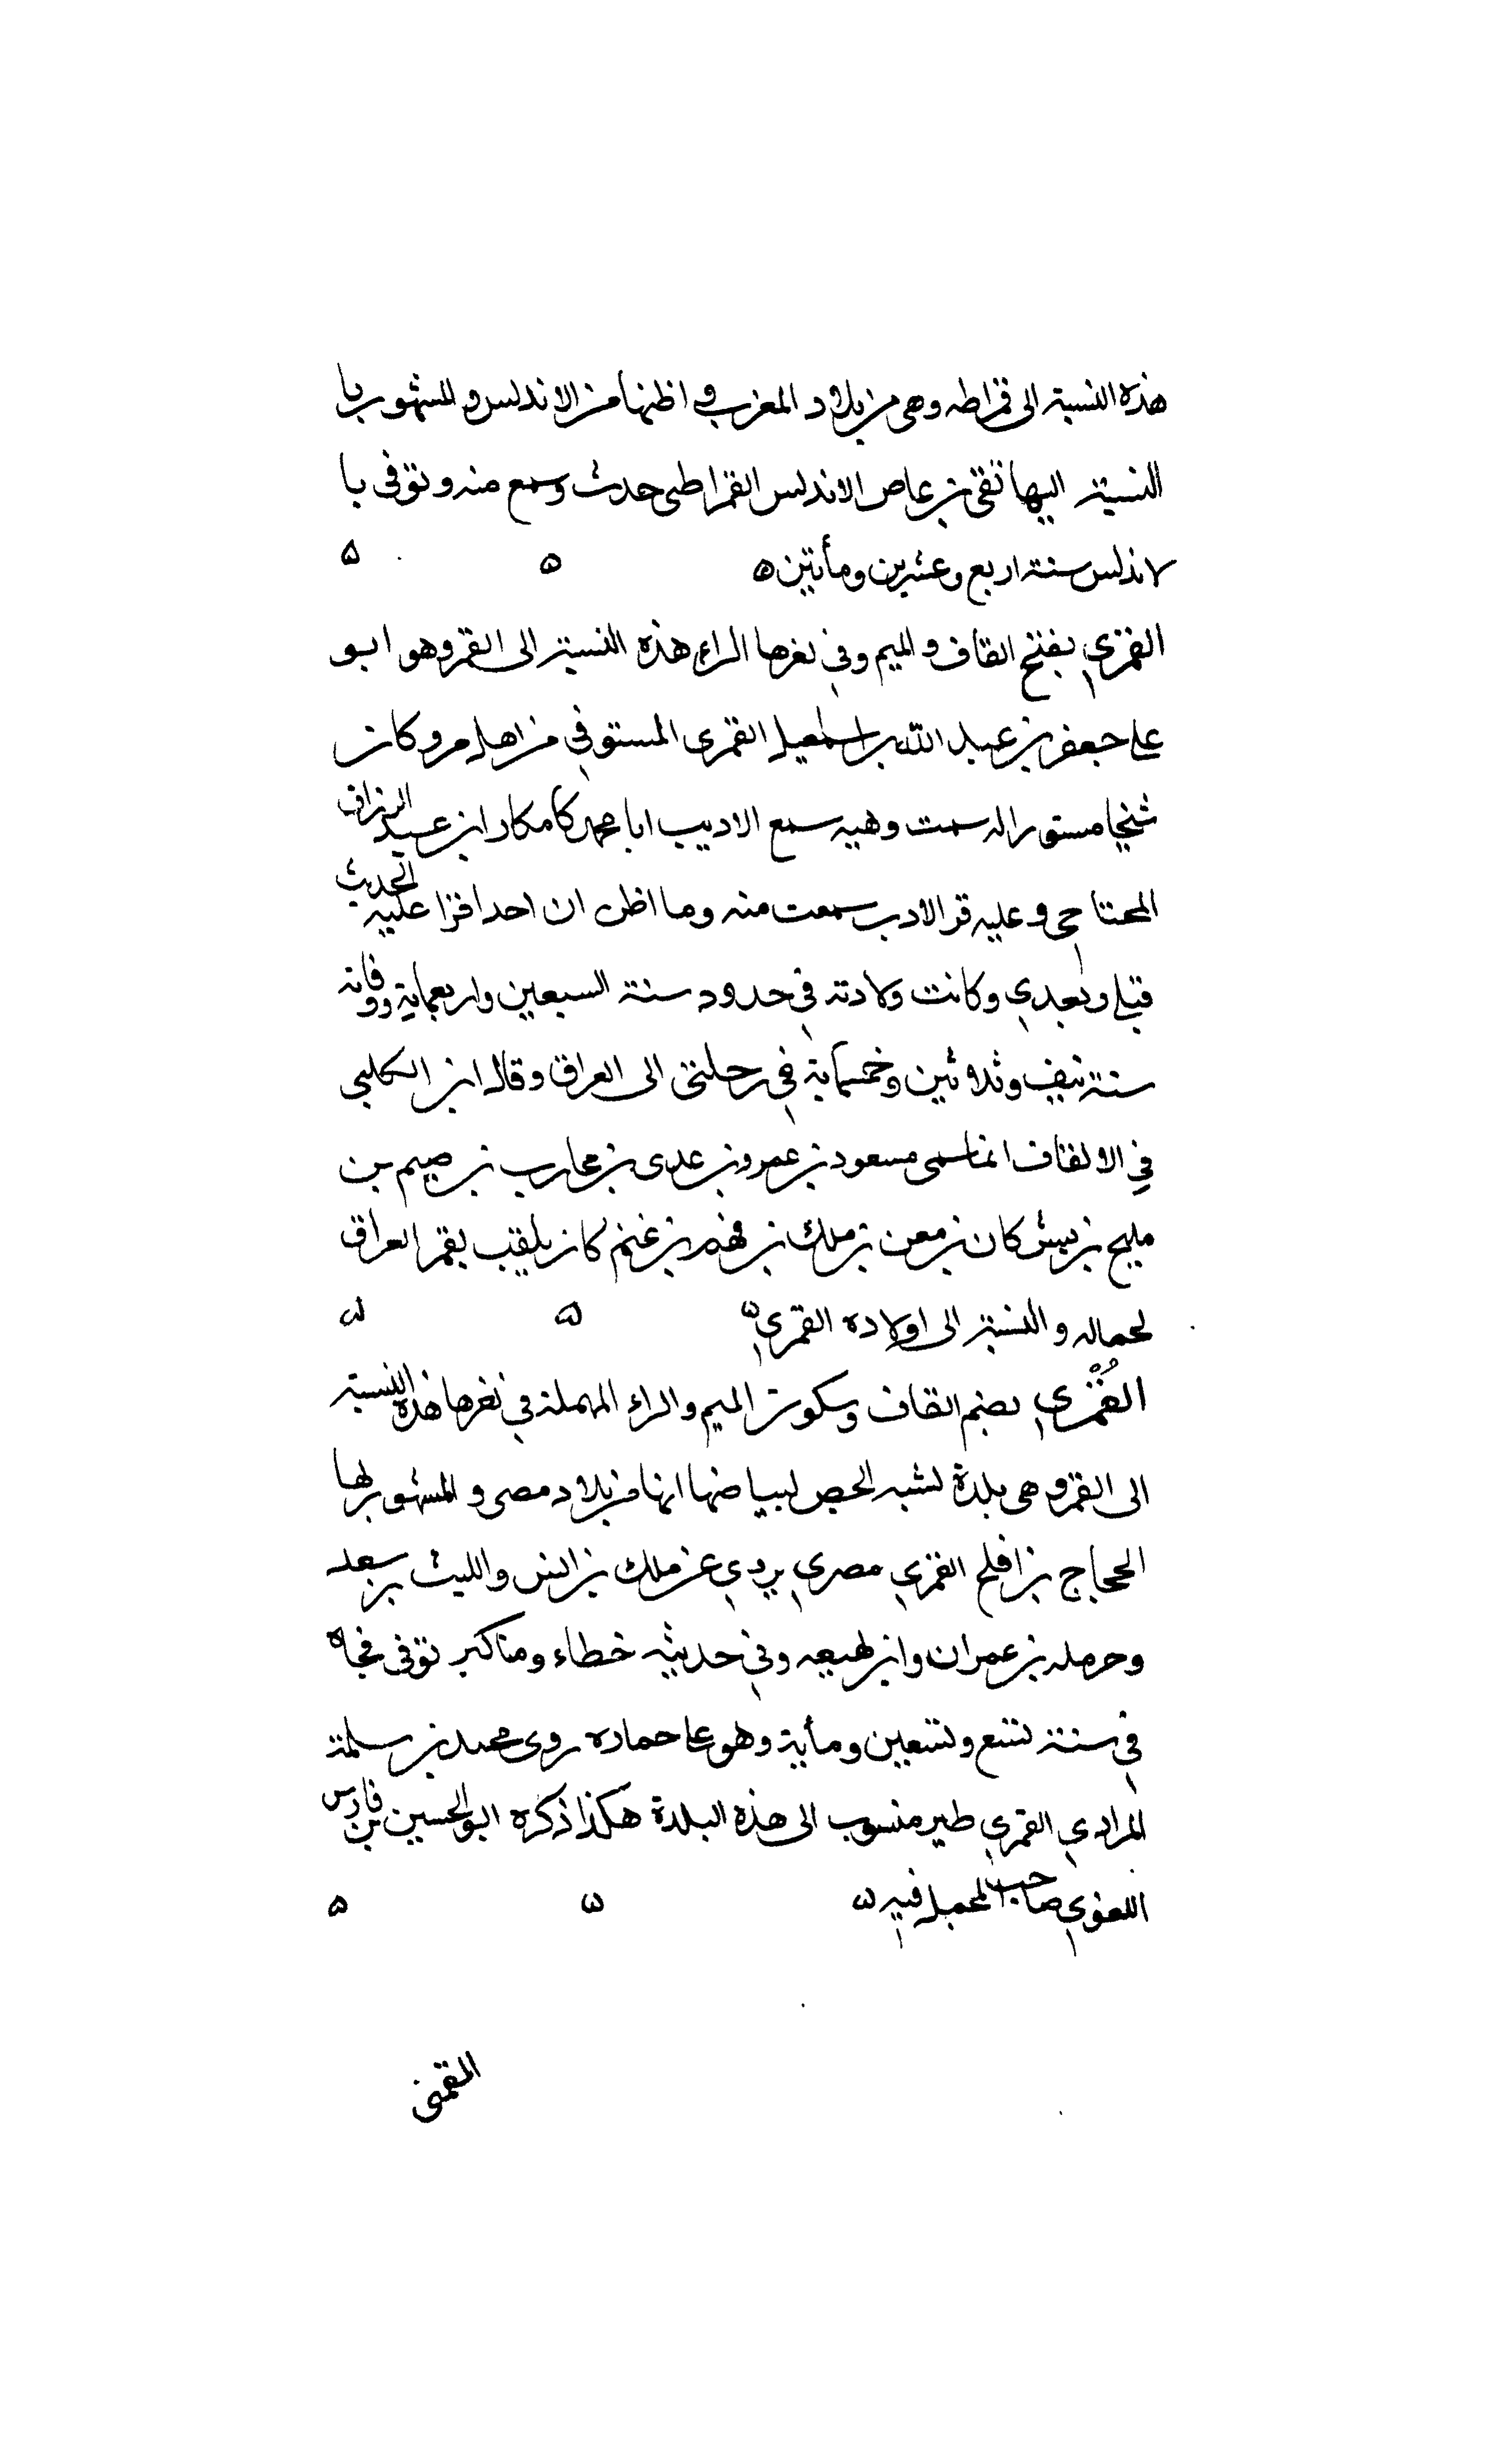 هذه النسبة الى قمراطه وهى من بلاد المغرب و اظنها من الاندلس و المشهور با
النسبة اليها تقى بن عاص الاندلس القمراطى حدث وسمع منه وتوفى با
لاندلس سنة اربع وعشرين ومأتين ه ه ه
القمري بفتح القاف والميم وفي اخرها الراء هذه النسبة الى القمر وهو ابو
على جعفر بن عبد الله بن اسمعيل القمرى المستوفي من اهل مرو كان
شيخا مستورا له سمت وهيه سمع الاديب ابا محمد كامكار ابن عبد الرزاق
المحتاجي وعليه قر الادب سمعت منه وما اظن ان احدا قرا عليه الحديث
قبلي وبعدي وكانت ولادته في حدود سنة السبعين واربعماية ووفاته
سنة نيف وثلاثين وخمسماية في رحلتى الى العراق وقال ابن الكلبي
في الالقاف انما سمى مسعود بن عمرو بن عدى بن محارب بن صيم بن
مليح بن شركان بن معن بن ملك بن فهم بن غنم كان يلقب بقمر العراق
لجماله والنسبة الى اولاده القمري ه ه ه
القُمْري بضم القاف وسكون الميم والراء المهملة في اخرها هذه النسبة
الى القمر وهى بلدة تشبه الجص لبياضها انها من بلاد مصر والمشهور بها
الحجاج بن افلح القمري مصري يروي عن ملك بن انس والليث بن سعد
وحرمله بن عمران وابن لهيعه وفي حديثه خطاء ومناكير توفى فجاه
في سنة تسع وتسعين ومأية وهو على حماره روى محمد بن سلمة
المرادي القمري طير منسوب الى هذه البلدة هكذا ذكره ابو الحسين بن فارس
اللغوي صاحب المجمل فيه ه ه ه
القمنى